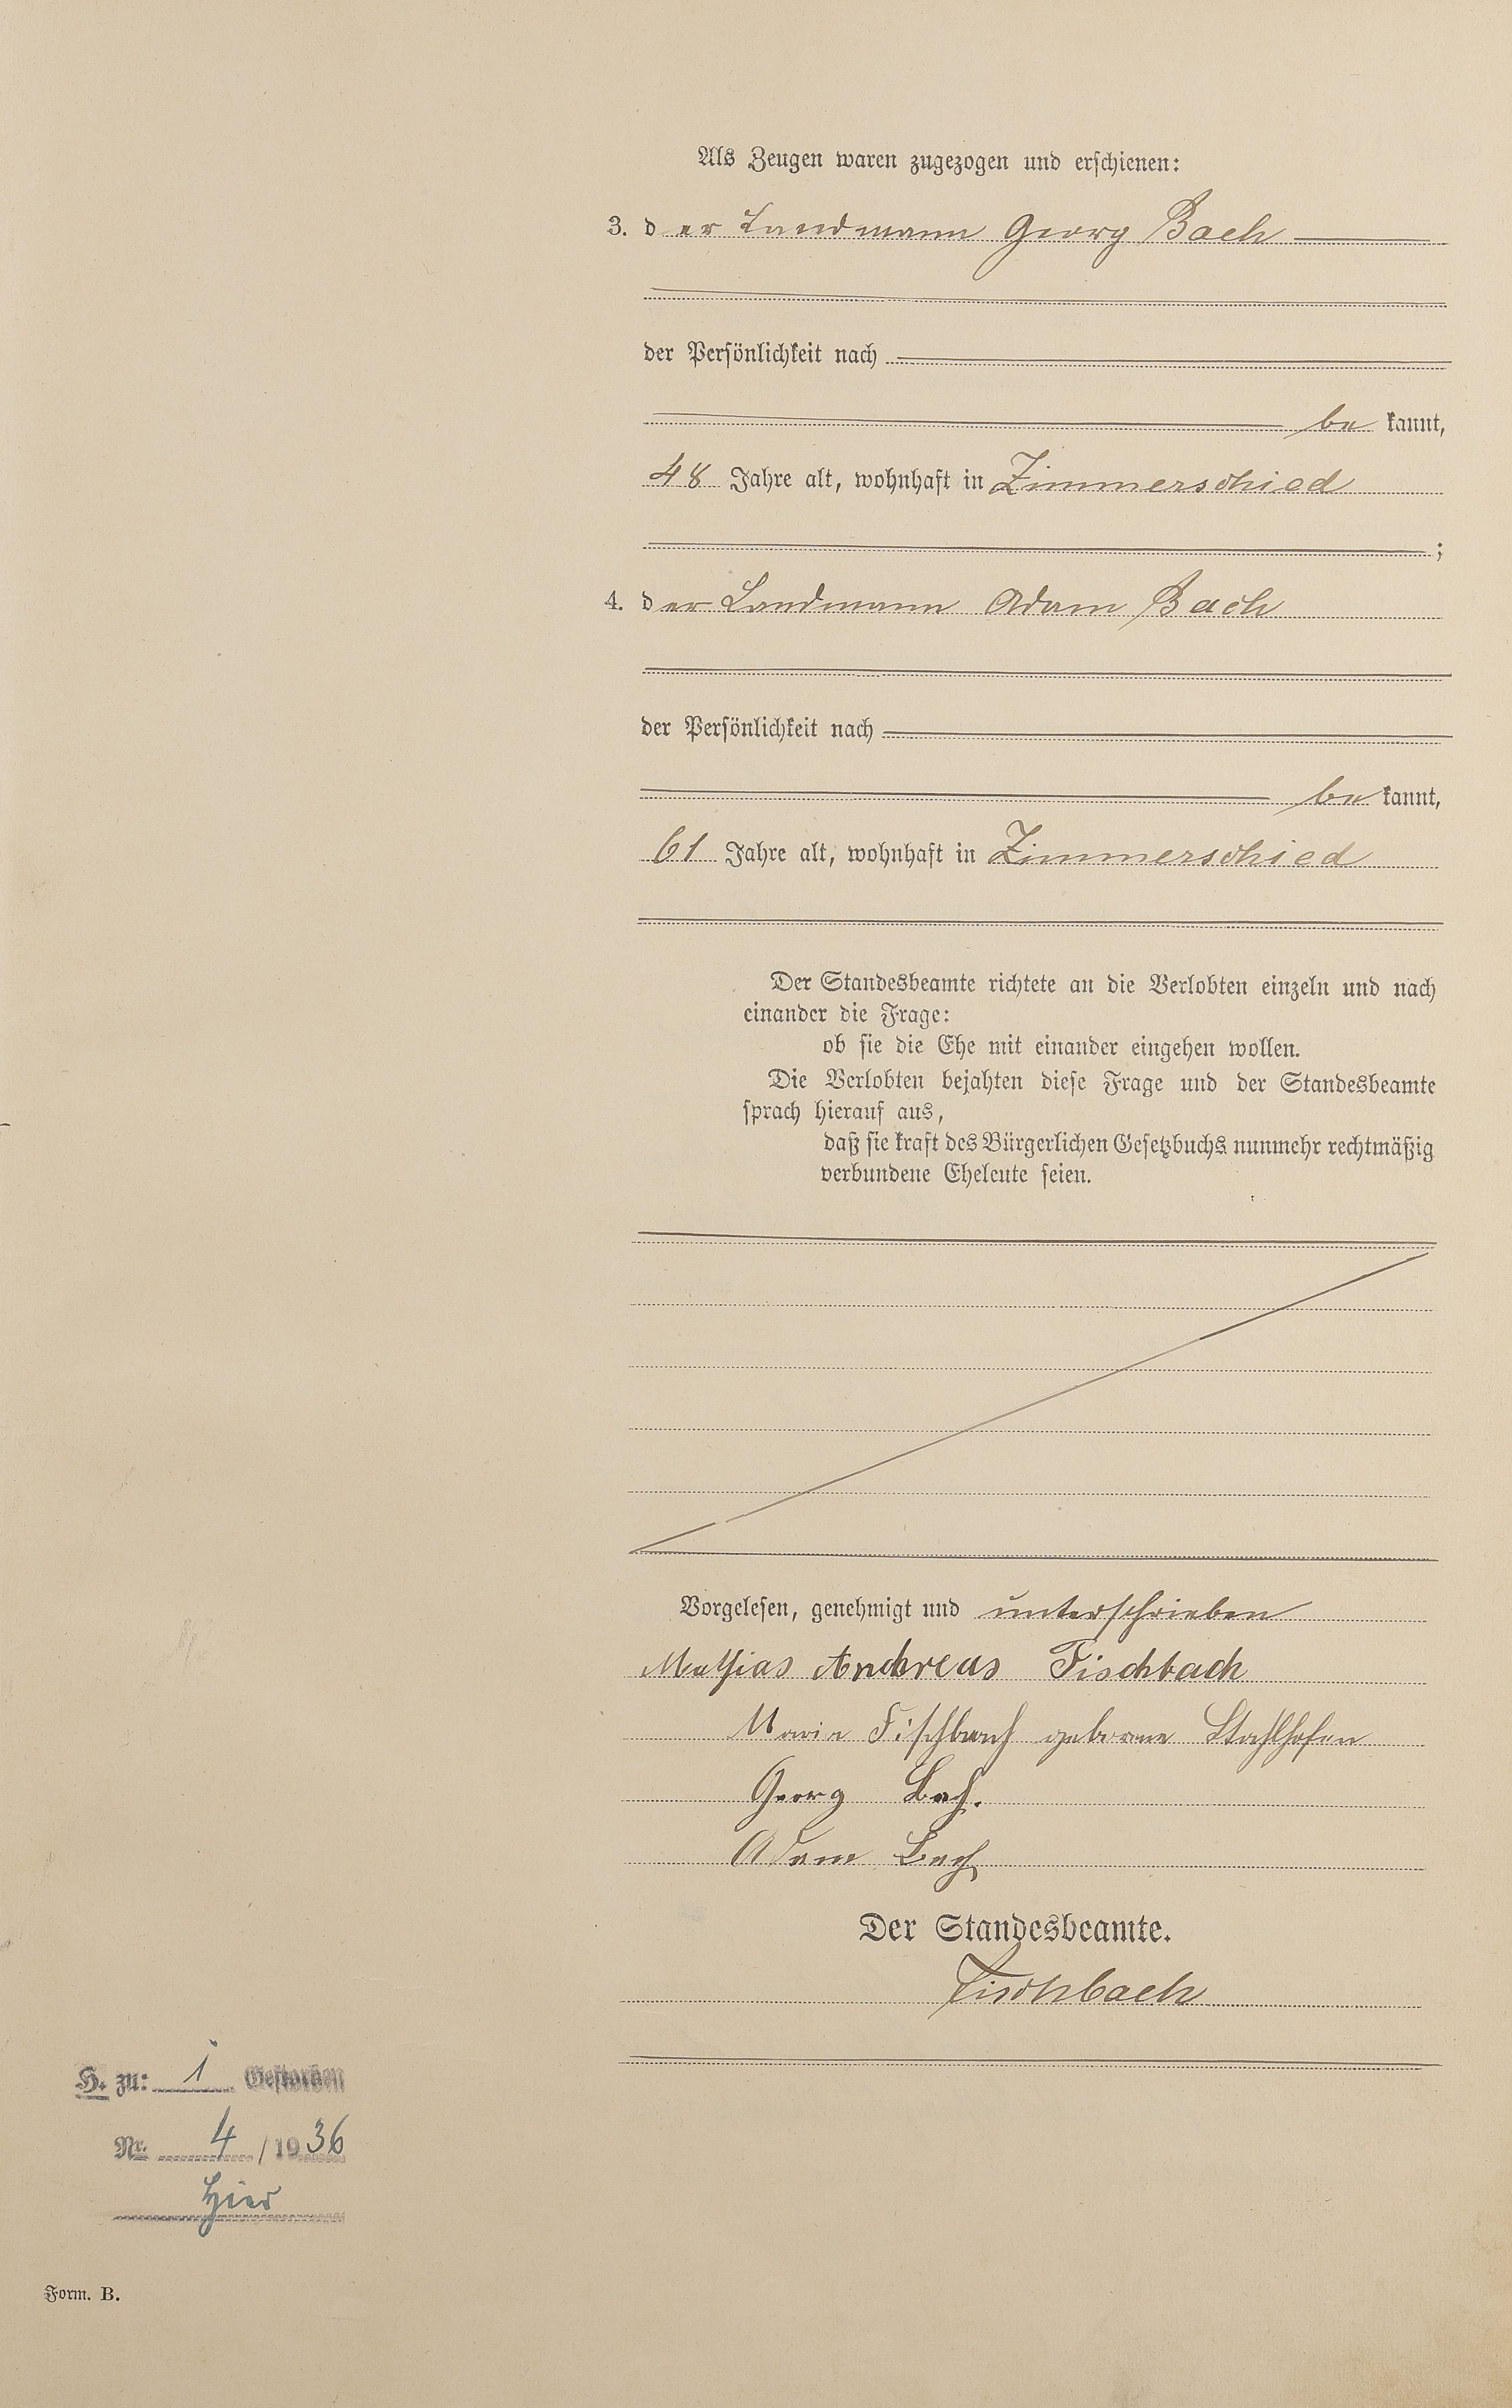 Als Zeugen waren zugezogen und erschienen:
3. der Landmann Georg Bach
der Persönlichkeit nach
be kannt,
48 Jahre alt, wohnhaft in Zimmerschied
;
4. der Landmann Adam Bach
der Persönlichkeit nach
be kannt,
61 Jahre alt, wohnhaft in Zimmerschied
Der Standesbeamte richtete an die Verlobten einzeln und nach
einander die Frage:
ob sie die Ehe mit einander eingehen wollen.
Die Verlobten bejahten diese Frage und der Standesbeamte
sprach hierauf aus,
daß sie kraft des Bürgerlichen Gesetzbuchs nunmehr rechtmäßig
verbundene Eheleute seien.
Vorgelesen, genehmigt und unterschrieben
Mathias Andreas Fischbach
Maria Fischbach geborene Stahlhofen
Georg Bach.
Adam Bach
Der Standesbeamte.
Fischbach
H. zu: 1 Gestorben
Nr. 4 / 1936
hier
Form. B.